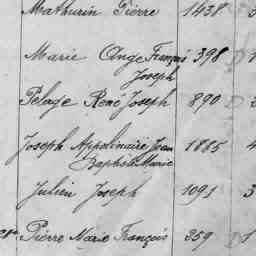 Mathurin Pierre 1438
Marie Ange François 398 D 1
Joseph
Pelage René Joseph 890 D 3
Joseph Appolinaire Jean 1885 4
Baptiste Marie
Julien Joseph 1091 3
Pierre Marie François 359 D 1